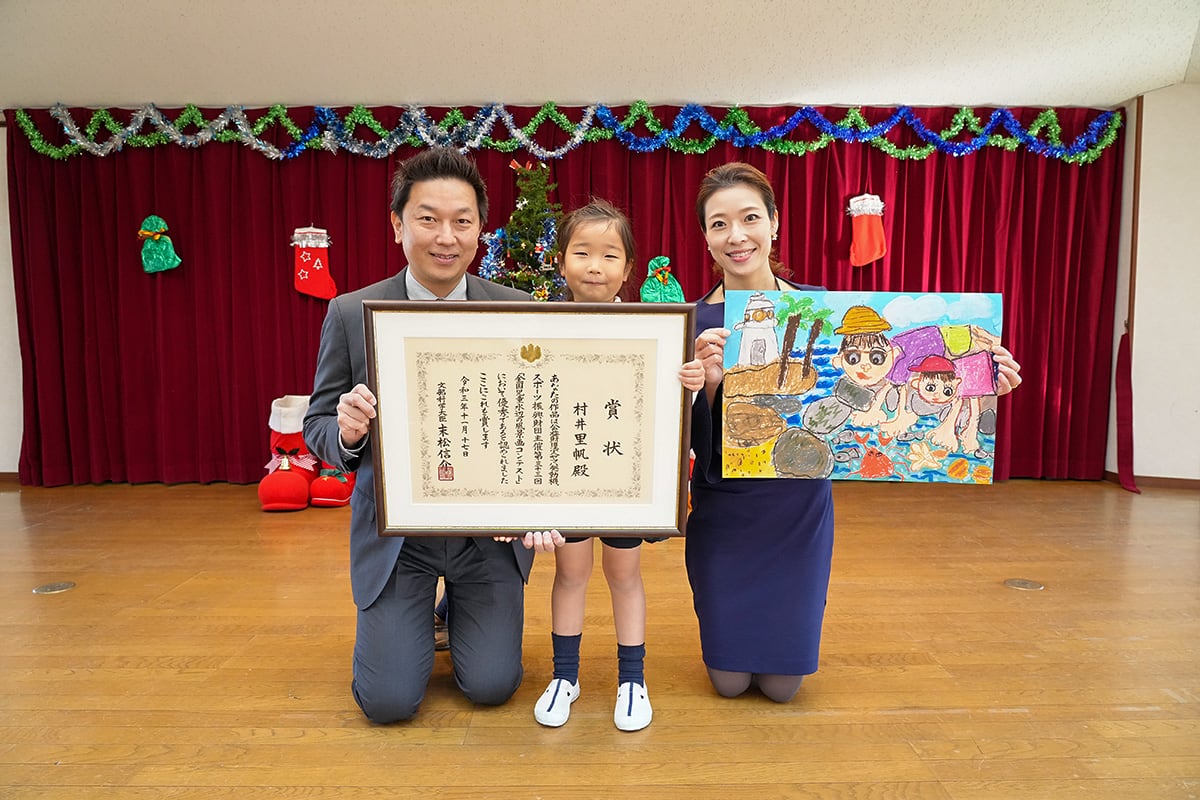 賞状
村井里帆殿
あなたの作品は公益財団法人マリン
スポーツ振興財団主催第三十三回
「全国児童水辺の風景画コンテスト」
において優秀であると認められました
ここにこれを賞します
令和三年十一月十七日
文部科学大臣 末松信介